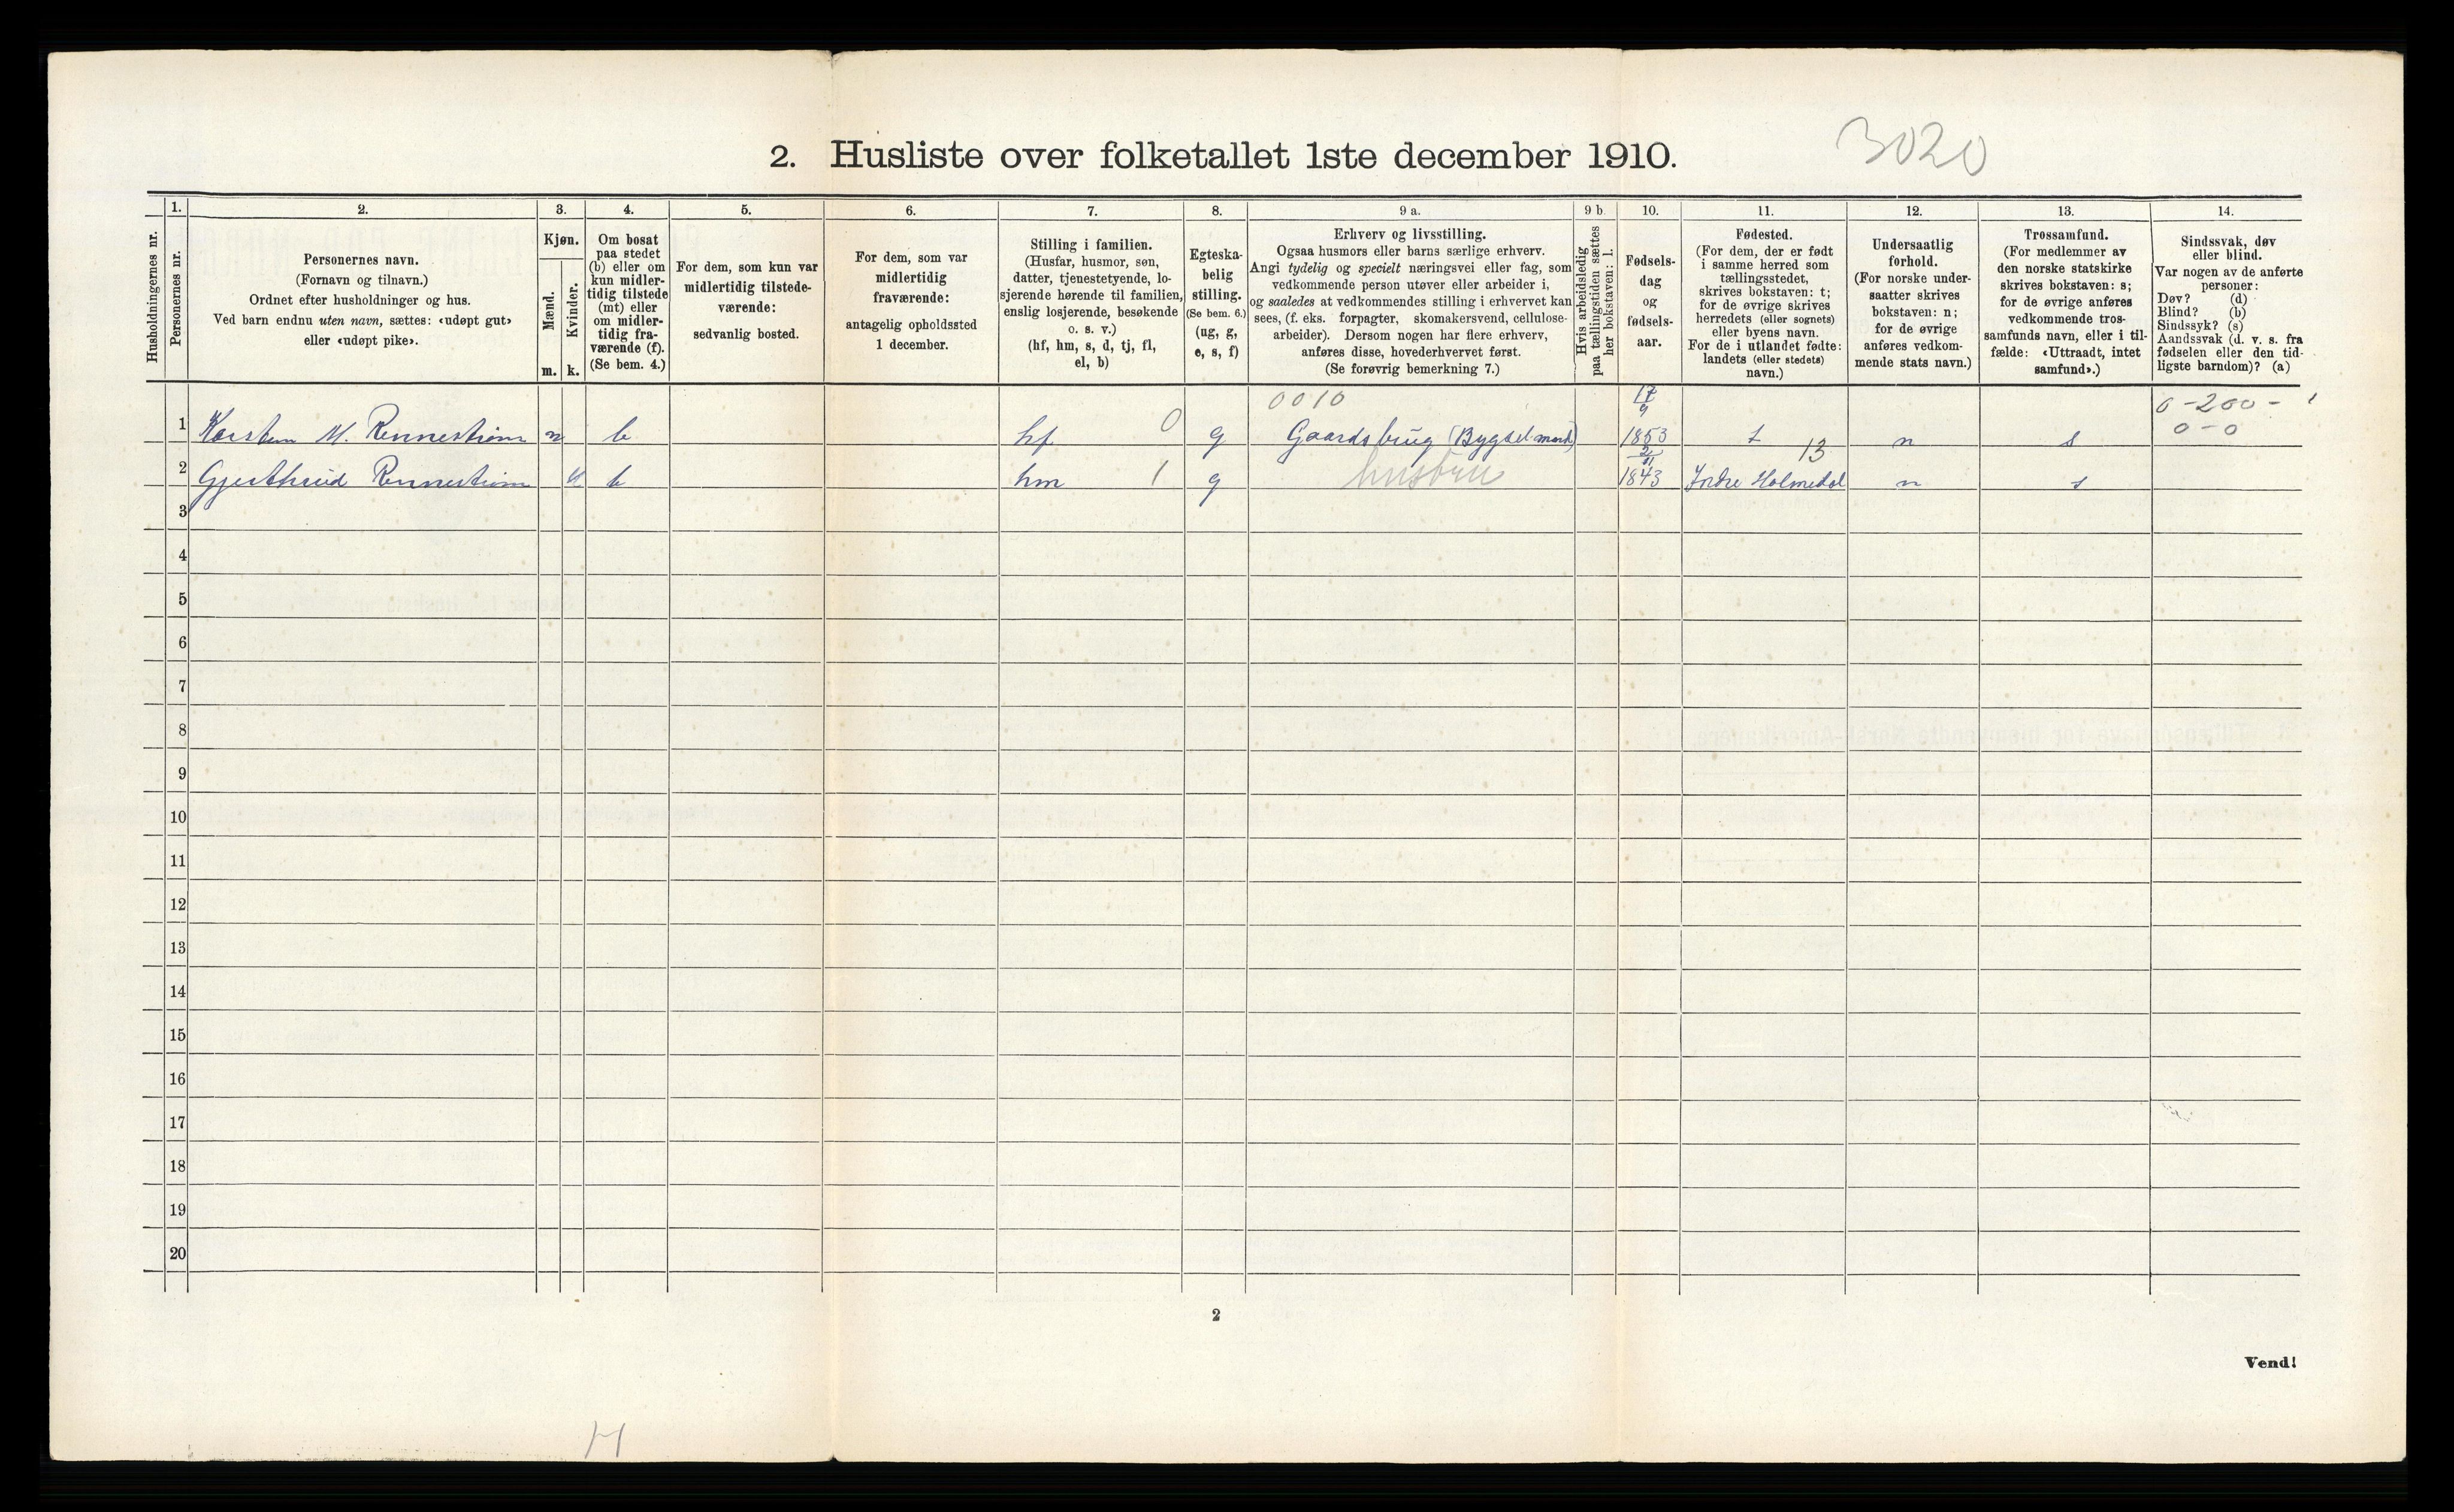 2. Husliste over folketallet 1ste december 1910.
3020
Husholdningernes nr.
1.
Personernes nr.
2.
Personernes navn.
(Fornavn og tilnavn.)
Ordnet efter husholdninger og hus.
Ved barn endnu uten navn, sættes: «udøpt gut»
eller «udøpt pike».
3.
Kjøn.
Mænd.
Kvinder.
m. k.
4.
Om bosat
paa stedet
(b) eller om
kun midler-
tidig tilstede
(mt) eller
om midler-
tidig fra-
værende (f).
(Se bem. 4.)
5.
For dem, som kun var
midlertidig tilstede-
værende:
sedvanlig bosted.
6.
For dem, som var
midlertidig
fraværende:
antagelig opholdssted
1 december.
7.
Stilling i familien.
(Husfar, husmor, søn,
datter, tjenestetyende, lo-
sjerende hørende til familien,
enslig losjerende, besøkende
o. s. v.)
(hf, hm, s, d, tj, fl,
el, b)
8.
Egteska-
belig
stilling.
(Se bem. 6.)
(ug, g,
e, s, f)
9 a.
Erhverv og livsstilling.
Ogsaa husmors eller barns særlige erhverv.
Angi tydelig og specielt næringsvei eller fag, som
vedkommende person utøver eller arbeider i,
og saaledes at vedkommendes stilling i erhvervet kan
sees, (f. eks. forpagter, skomakersvend, cellulose-
arbeider). Dersom nogen har flere erhverv,
anføres disse, hovederhvervet først.
(Se forøvrig bemerkning 7.)
9 b.
Hvis arbeidsledig
paa tællingstiden sættes
her bokstaven: l.
10.
Fødsels-
dag
og
fødsels-
aar.
11.
Fødested.
(For dem, der er født
i samme herred som
tællingsstedet,
skrives bokstaven: t;
for de øvrige skrives
herredets (eller sognets)
eller byens navn.
For de i utlandet fødte:
landets (eller stedets)
navn.)
12.
Undersaatlig
forhold.
(For norske under-
saatter skrives
bokstaven: n;
for de øvrige
anføres vedkom-
mende stats navn.)
13.
Trossamfund.
(For medlemmer av
den norske statskirke
skrives bokstaven: s;
for de øvrige anføres
vedkommende tros-
samfunds navn, eller i til-
fælde: «Uttraadt, intet
samfund».)
14.
Sindssvak, døv
eller blind.
Var nogen av de anførte
personer:
Døv? (d)
Blind? (b)
Sindssyk? (s)
Aandssvak (d. v. s. fra
fødselen eller den tid-
ligste barndom)? (a)
0010
0-200-
0-0
1 Karsten M. Rennestrøm m b hf 0 g Gaardsbrug (Bygselmand) 1853 t n s
13
2 Gjerthrud Rennestrøm k b hm 1 g husbru 2/11 1843 Indre Holmedal n s
3
4
5
6
7
8
9
10
11
12
13
14
15
16
17
18
19
20
2
Vend!
H